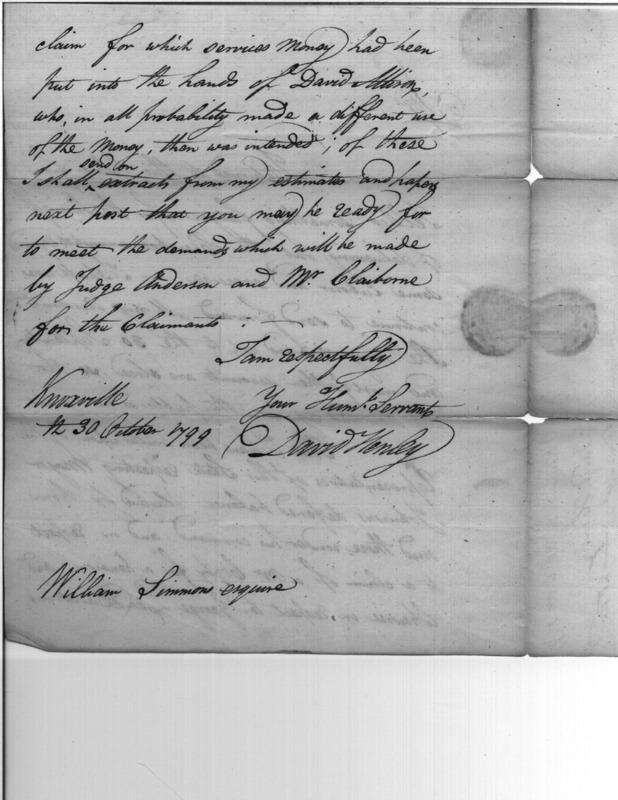 claim for which services Money had been
put into the hands of David Allison,
who, in all probability made a different use
of the Money, then was intended; of these
I shall send on extracts from my estimates and papers
next post that you may be ready for
to meet the demands which will be made
by Judge Anderson and Mr Claiborne
for the Claimants :—
I am respectfully
Your Humb. Servant
Knoxville
th 30 October 1799
David Henley
William Simmons esquire